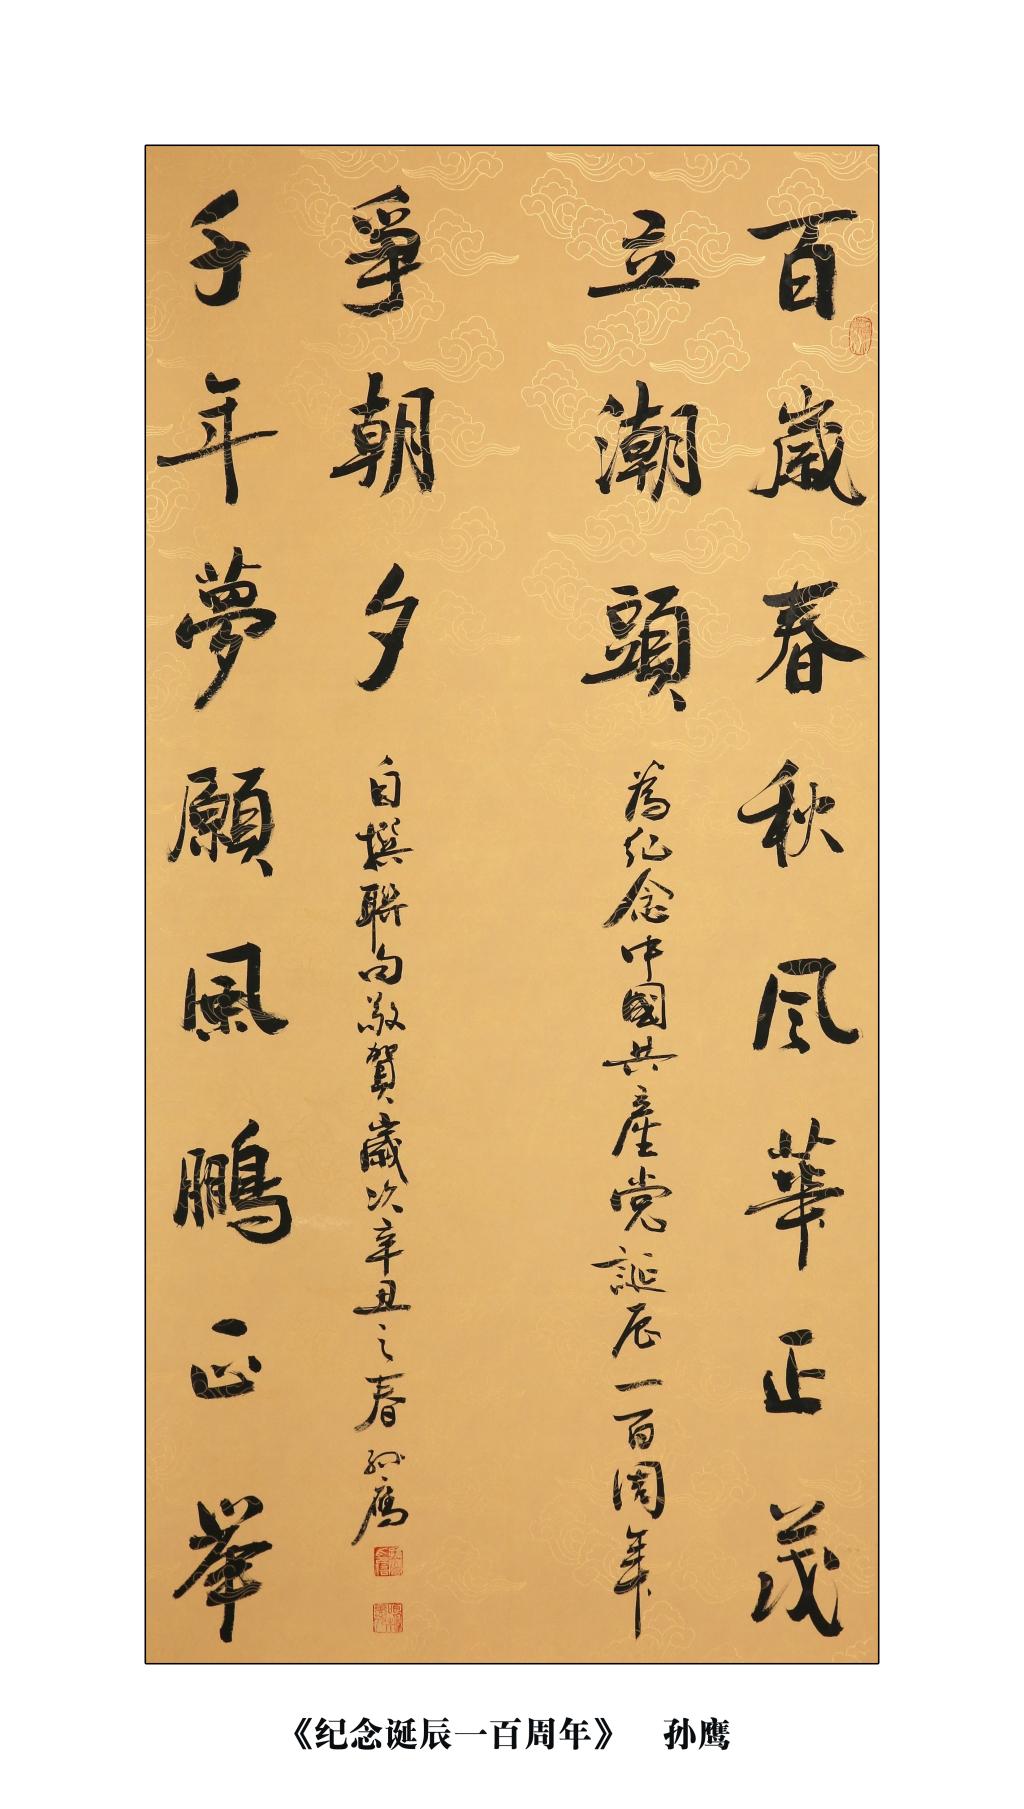 百歲春秋風華正茂
立潮頭
為紀念中國共產党誕辰一百周年
千年夢願風鵬正舉
爭朝夕
自撰聯句敬賀歲次辛丑之春 孫鷹
《纪念诞辰一百周年》 孙鹰